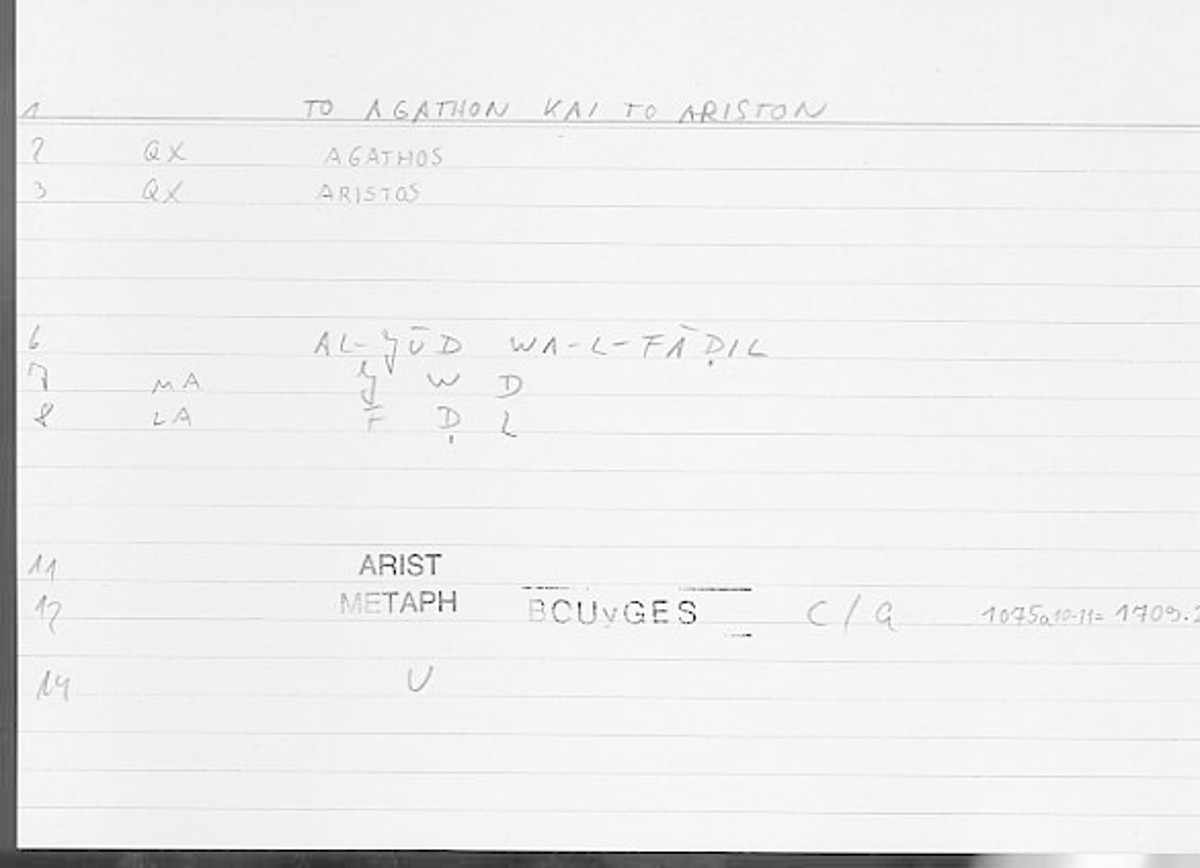 1 TO AGATHON KAI TO ARISTON
2 QX AGATHOS
3 QX ARISTOS
6 AL-ǧŪD WA-L-FĀḌIL
7 MA ǧ W D
8 LA F Ḍ L
11 ARIST
12 METAPH BCUvGES C/G 1075a10-11= 1709.2
14 U